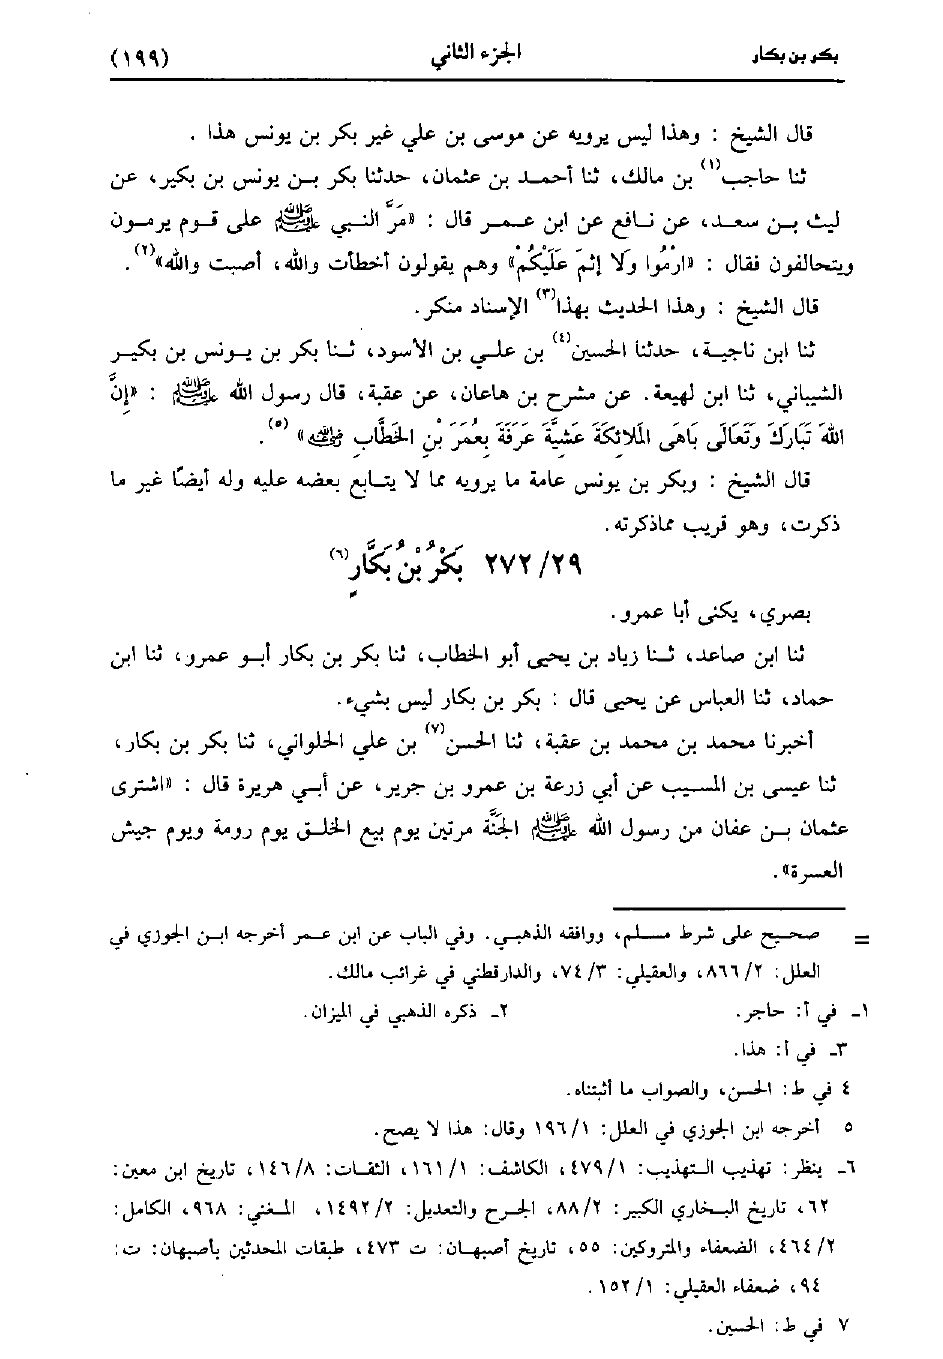 بكر بن بكار الجزء الثاني (١٩٩)
قال الشيخ : وهذا ليس يرويه عن موسى بن علي غير بكر بن يونس هذا .
ثنا حاجب(١) بن مالك، ثنا أحمد بن عثمان، حدثنا بكر بن يونس بن بكير، عن
ليث بن سعد، عن نافع عن ابن عمر قال : «مَرَّ النبي ﷺ على قوم يرمون
ويتحالفون فقال : «ارْمُوا وَلَا إِثْمَ عَلَيْكُمْ» وهم يقولون أخطأت والله، أصبت والله»(٢).
قال الشيخ : وهذا الحديث بهذا(٣) الإسناد منكر.
ثنا ابن ناجية، حدثنا الحسين(٤) بن علي بن الأسود، ثنا بكر بن يونس بن بكير
الشيباني، ثنا ابن لهيعة. عن مشرح بن هاعان، عن عقبة، قال رسول الله ﷺ : «إِنَّ
اللهَ تَبَارَكَ وَتَعَالَى بَاهَى المَلَائِكَةَ عَشِيَّةَ عَرَفَةَ بِعُمَرَ بْنِ الخَطَّابِ رضي الله عنه»(٥).
قال الشيخ : وبكر بن يونس عامة ما يرويه مما لا يتابع بعضه عليه وله أيضًا غير ما
ذكرت، وهو قريب مماذكرته.
٢٧٢/٢٩ بَكْرُ بْنُ بَكَّارٍ(٦)
بصري، يكنى أبا عمرو.
ثنا ابن صاعد، ثنا زياد بن يحيى أبو الخطاب، ثنا بكر بن بكار أبو عمرو، ثنا ابن
حماد، ثنا العباس عن يحيى قال : بكر بن بكار ليس بشيء.
أخبرنا محمد بن محمد بن عقبة، ثنا الحسن(٧) بن علي الحلواني، ثنا بكر بن بكار،
ثنا عيسى بن المسيب عن أبي زرعة بن عمرو بن جرير، عن أبي هريرة قال : «اشترى
عثمان بن عفان من رسول الله ﷺ الجنَّة مرتين يوم بيع الخلق يوم رومة ويوم جيش
العسرة».
= صحيح على شرط مسلم، ووافقه الذهبي. وفي الباب عن ابن عمر أخرجه ابن الجوزي في
العلل: ٨٦٦/٢، والعقيلي: ٧٤/٣، والدارقطني في غرائب مالك.
١ـ في أ: حاجر. ٢ـ ذكره الذهبي في الميزان.
٣ـ في أ: هذا.
٤ في ط: الحسن، والصواب ما أثبتناه.
٥ أخرجه ابن الجوزي في العلل: ١٩٦/١ وقال: هذا لا يصح.
٦ـ ينظر: تهذيب التهذيب: ٤٧٩/١، الكاشف: ١٦١/١، الثقات: ١٤٦/٨، تاريخ ابن معين:
٦٢، تاريخ البخاري الكبير: ٨٨/٢، الجرح والتعديل: ١٤٩٢/٢، المغني: ٩٦٨، الكامل:
٤٦٤/٢، الضعفاء والمتروكين: ٥٥، تاريخ أصبهان: ت ٤٧٣، طبقات المحدثين بأصبهان: ت:
٩٤، ضعفاء العقيلي: ١٥٢/١.
٧ في ط: الحسين.